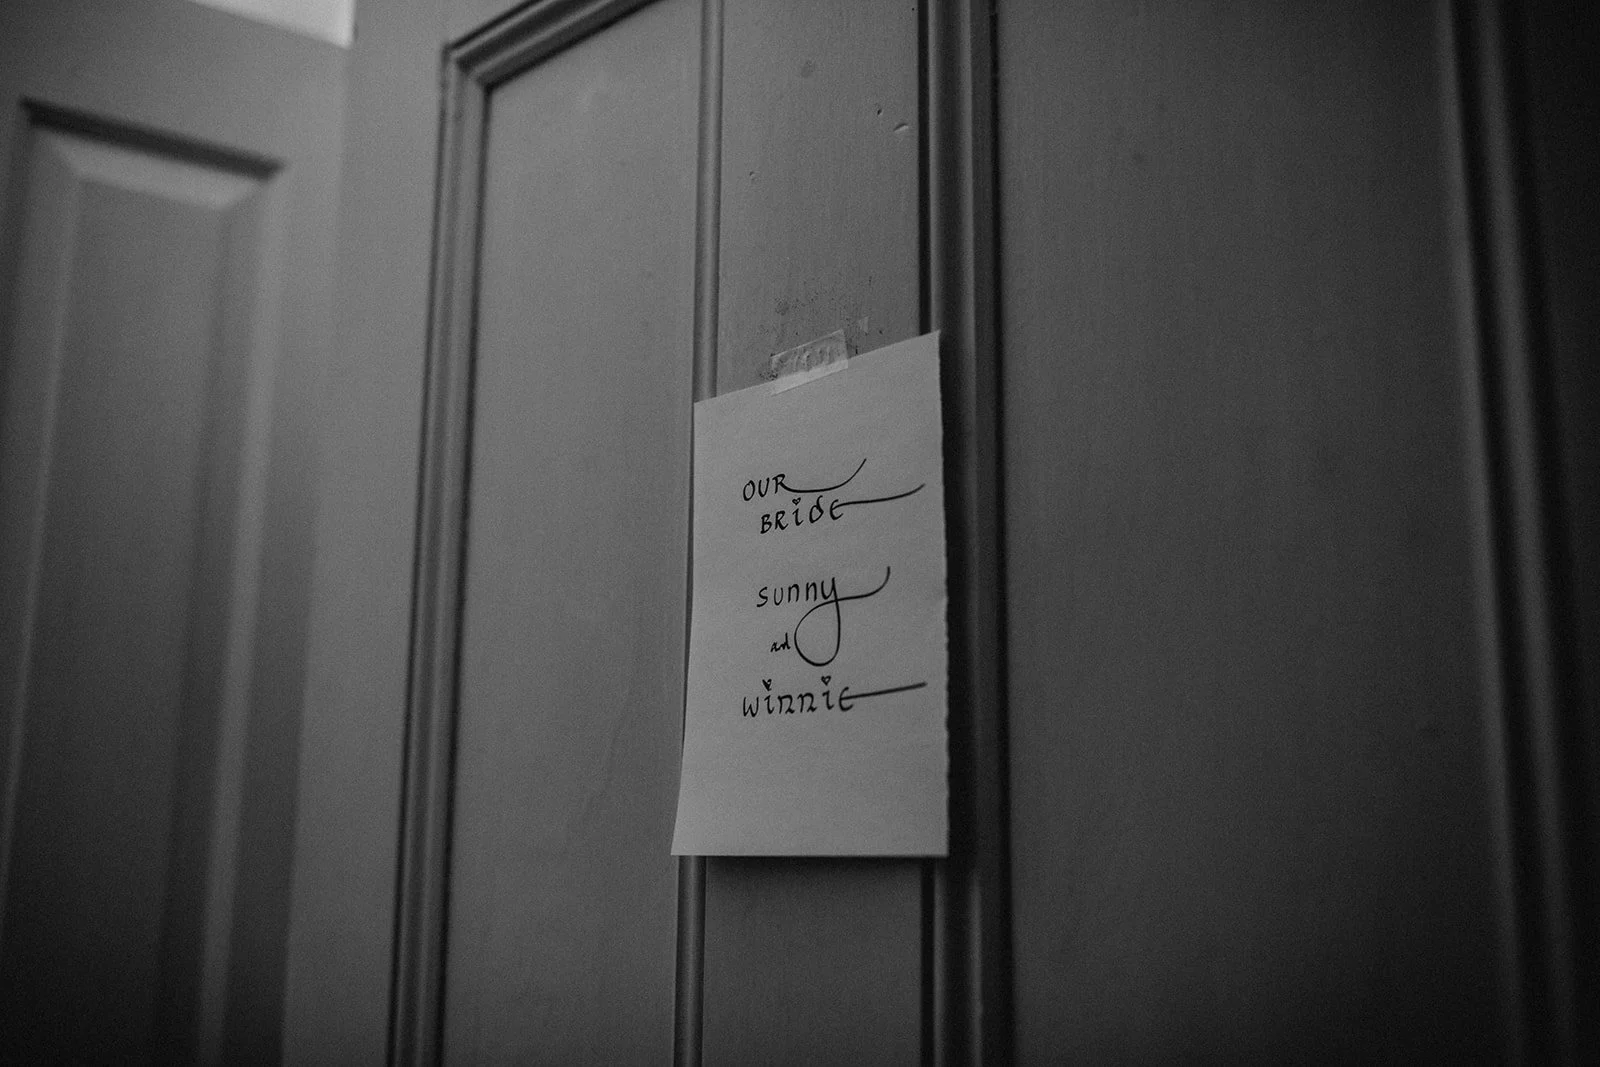 OUR
BRiDE
sunny
and
winnie